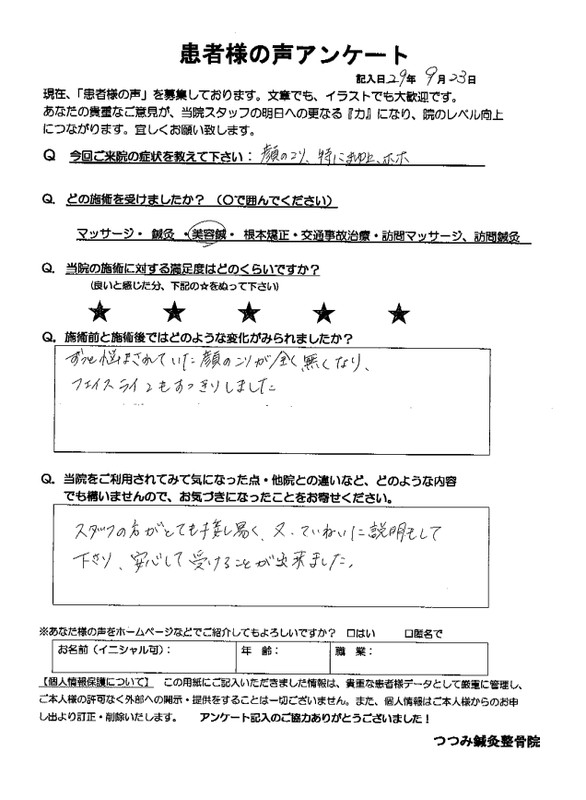 患者様の声アンケート
記入日29年9月23日
現在、「患者様の声」を募集しております。文章でも、イラストでも大歓迎です。
あなたの貴重なご意見が、当院スタッフの明日への更なる『力』になり、院のレベル向上
につながります。宜しくお願い致します。
Q 今回ご来院の症状を教えて下さい： 顔のコリ、特に 、ホホ
Q. どの施術を受けましたか？（〇で囲んでください）
マッサージ・ 鍼灸 ・美容鍼・ 根本矯正・交通事故治療・訪問マッサージ、訪問鍼灸
Q. 当院の施術に対する満足度はどのくらいですか？
（良いと感じた分、下記の☆をぬって下さい）
★ ★ ★ ★ ★
Q. 施術前と施術後ではどのような変化がみられましたか？
ずっと悩まされていた顔のコリが全く無くなり、
フェイスラインもすっきりしました
Q. 当院をご利用されてみて気になった点・他院との違いなど、どのような内容
でも構いませんので、お気づきになったことをお寄せください。
スタッフの方がとても接し易く、又、ていねいに説明もして
下さり、安心して受けることが出来ました。
※あなた様の声をホームページなどでご紹介してもよろしいですか？ 口はい 口匿名で
お名前（イニシャル可）： 年 齢： 職 業：
【個人情報保護について】 この用紙にご記入いただきました情報は、貴重な患者様データとして厳重に管理し、
ご本人様の許可なく外部への開示・提供をすることは一切ございません。また、個人情報はご本人様からのお申
し出より訂正・削除いたします。 アンケート記入のご協力ありがとうございました！
つつみ鍼灸整骨院